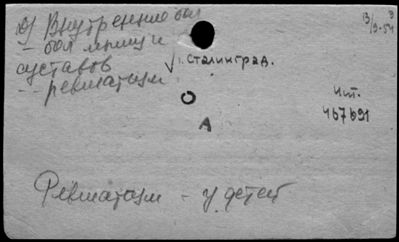 д) Внутренние бол
- бол мышц и
суставов
- ревматизм
г. Сталинград.
13/IX-54
Инт.
467691
А
Ревматизм - у детей